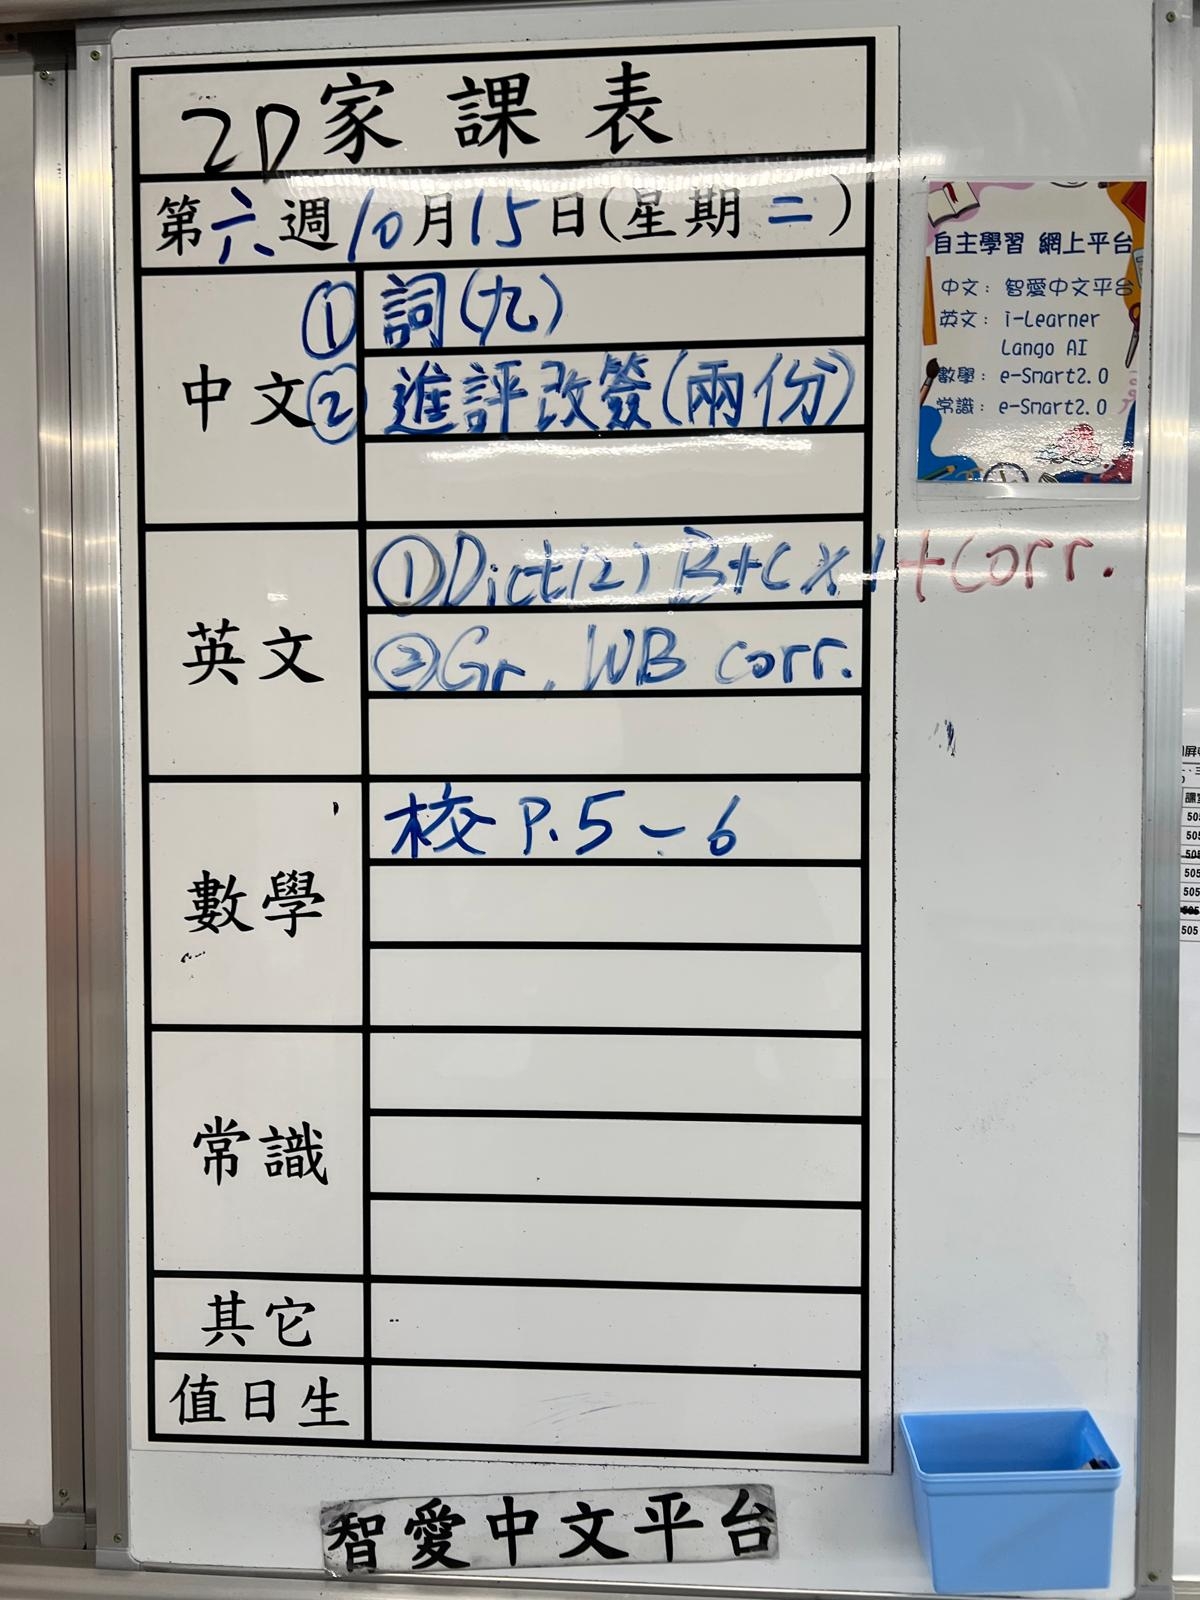 2D 家課表
第六週 10月15日(星期二)
中文 ① 詞(九)
② 進評改簽(兩份)
英文 ① Dict(2) B+C x 1 + Corr.
② Gr. WB corr.
數學 校 P.5-6
常識
其它
值日生
智愛中文平台
自主學習 網上平台
中文：智愛中文平台
英文：i-Learner
Lango AI
數學：e-Smart2.0
常識：e-Smart2.0
課室
505
505
505
505
505
505
505